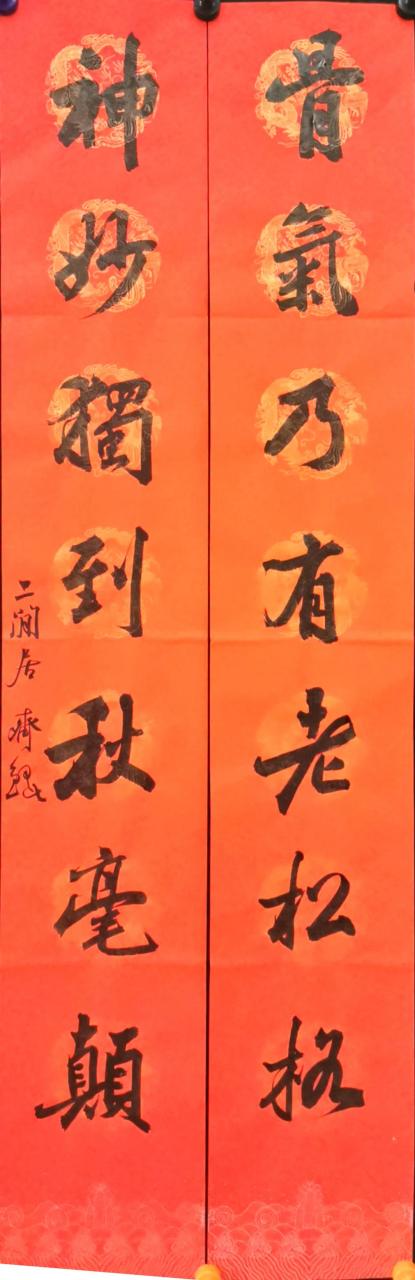 骨氣乃有老松格
神妙獨到秋毫顛
二閒居 齊鯤